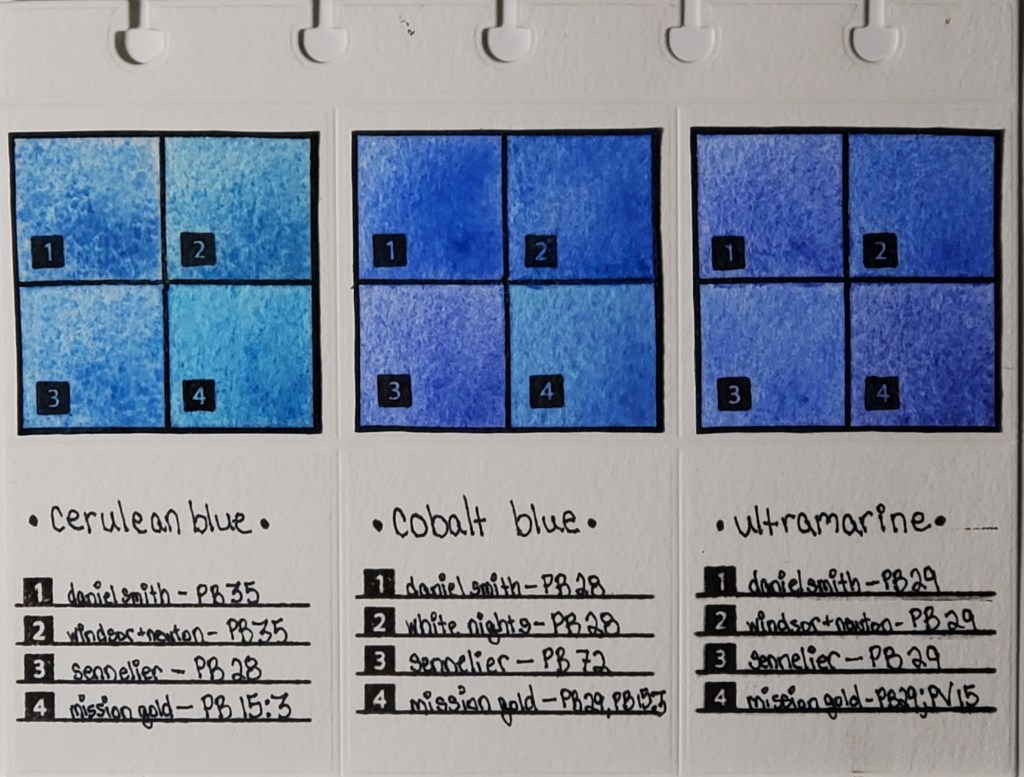 1 2
3 4
1 2
3 4
1 2
3 4
• cerulean blue •
1 daniel smith - PB35
2 windsor + newton - PB35
3 sennelier - PB28
4 mission gold - PB15:3
• cobalt blue •
1 daniel smith - PB28
2 white nights - PB28
3 sennelier - PB72
4 mission gold - PB29, PB15:3
• ultramarine •
1 daniel smith - PB29
2 windsor + newton - PB29
3 sennelier - PB29
4 mission gold - PB29; PV15